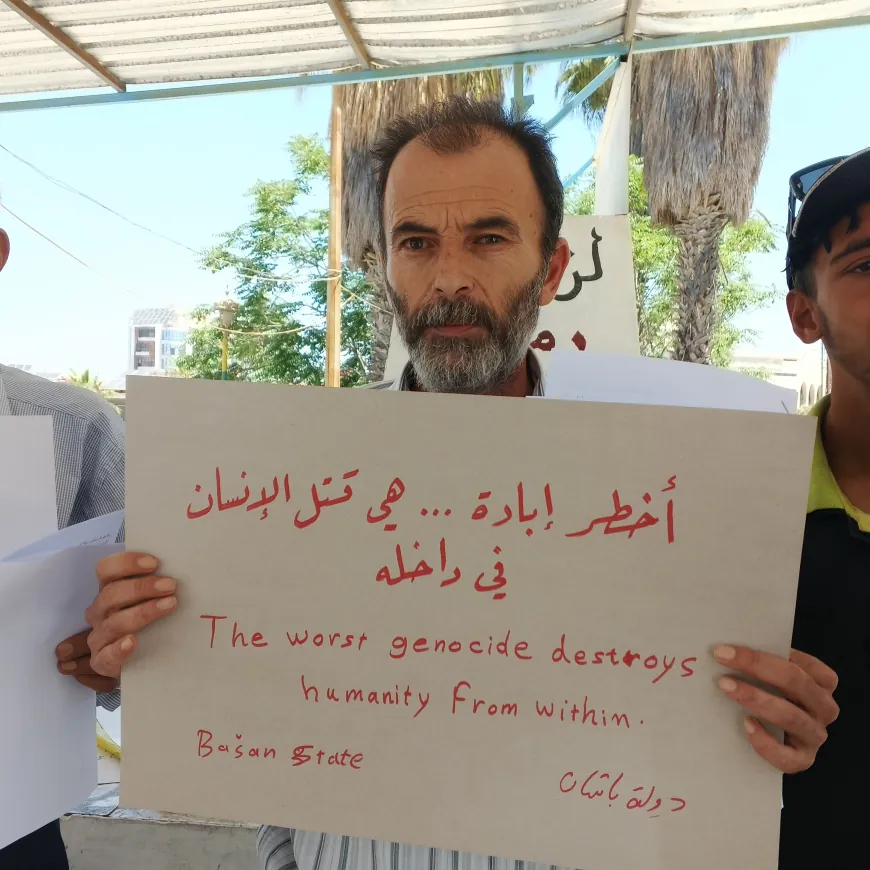 لن
أخطر إبادة ... هي قتل الإنسان
في داخله
The worst genocide destroys
humanity from within.
Bašan State
دولة باشان